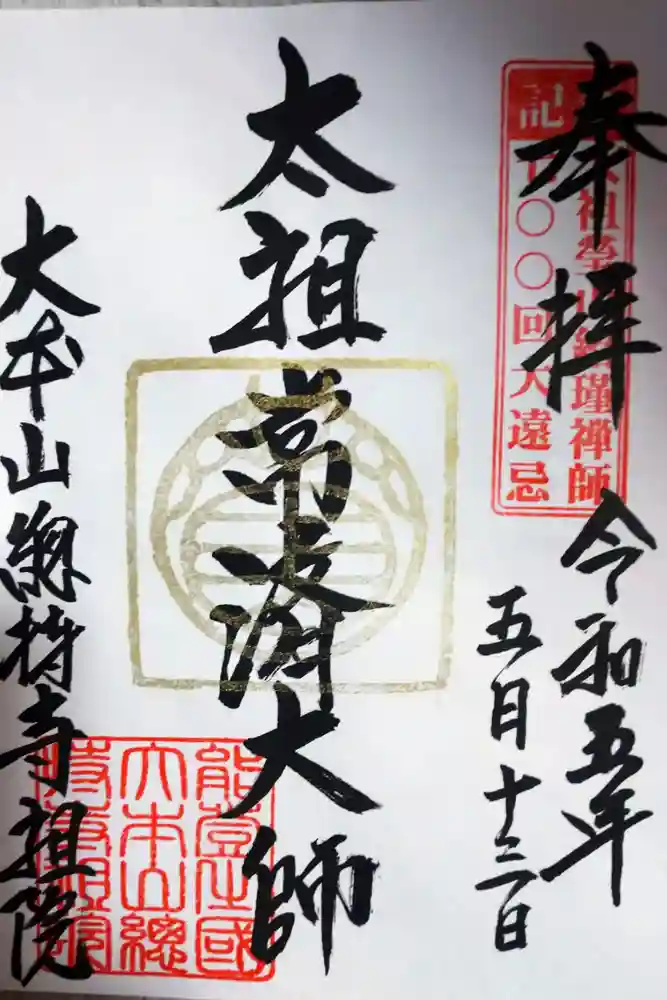 奉拝
太祖瑩山紹瑾禅師
七〇〇回大遠忌
記
令和五年
五月十三日
太祖常済大師
大本山總持寺祖院
能登國
大本山總
持寺祖院